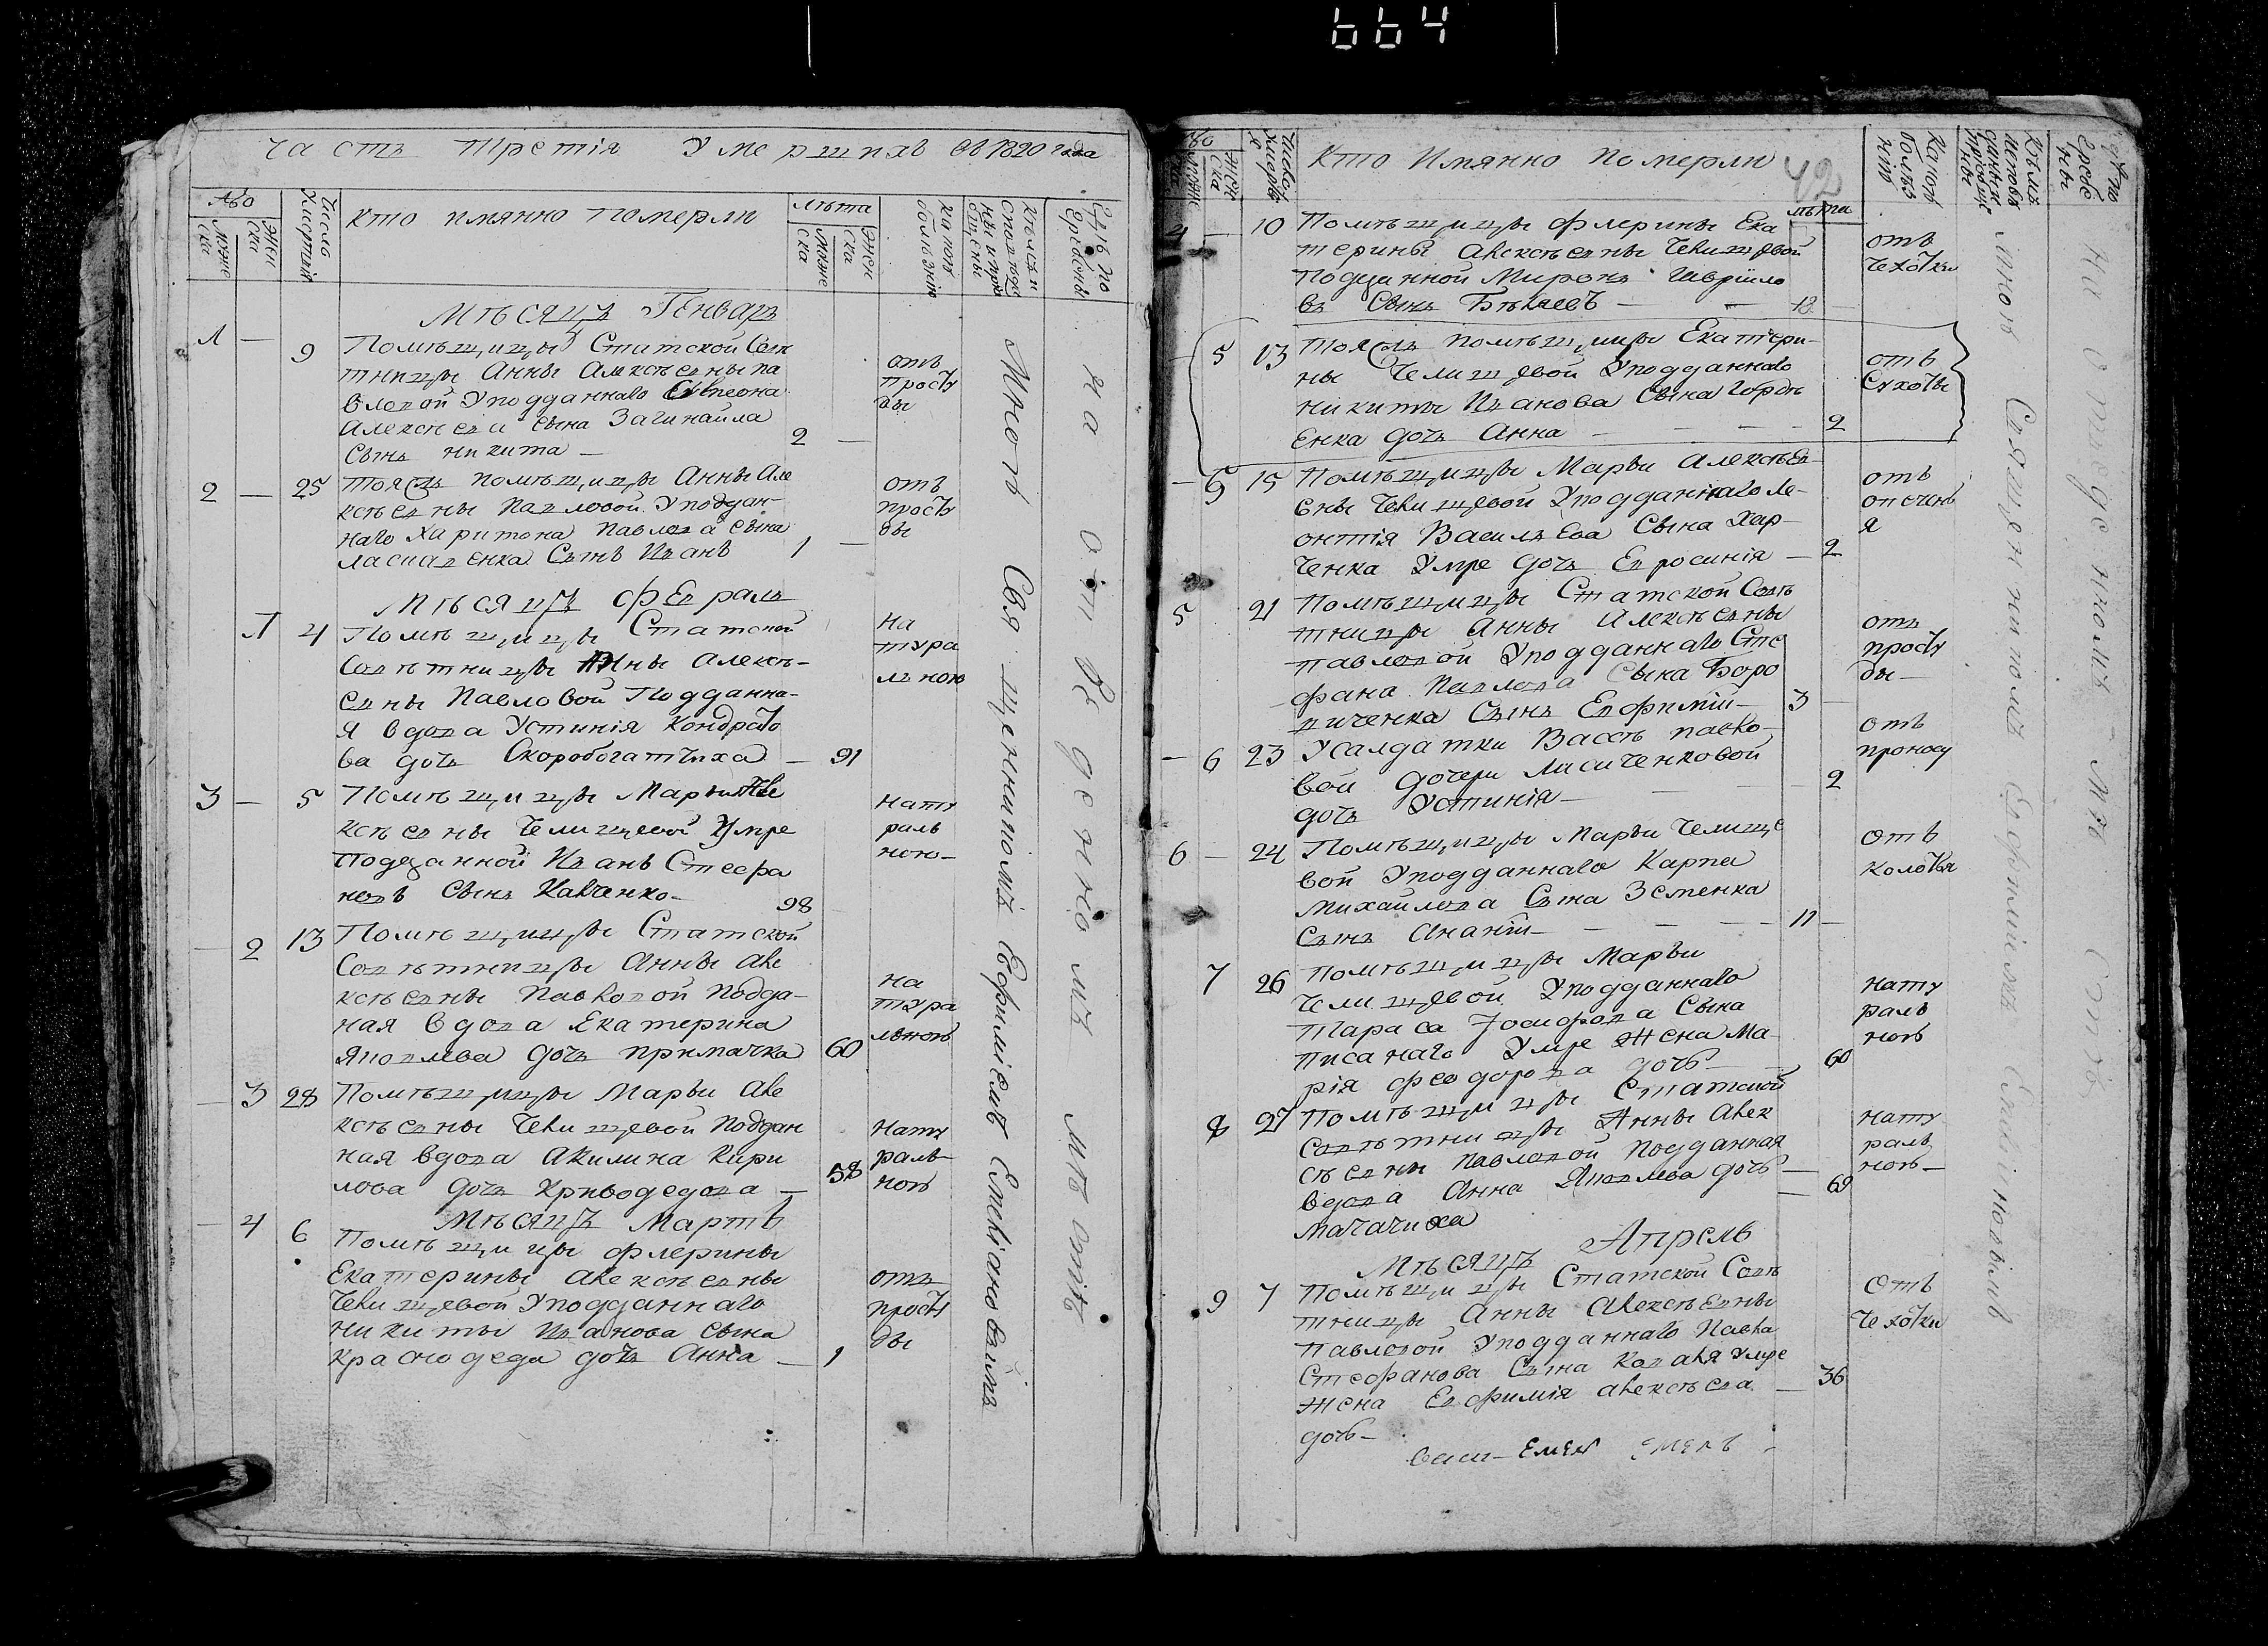 664
Часть третія Умершихъ въ 1820 года
Аво
Муже
ска
Жен
ска
Число
Смертей
Кто имянно Померли
Лѣта
Муже
ска
Жен
ска
Какою
болѣзнію
Кѣмъ и
Гдѣ по
гребены
Мѣсяцъ Генварь
1 — 9 Помѣщицы Статской Совѣ
тницы Анны Алексѣевны па
вловой Уподданнаго
Алексѣева сына
Сынъ никита — 2 —
отъ
просту
ды
2 — 25 Тояжъ помѣщицы Анны Але
ксѣевны Павловой Уподдан-
наго Харитона Павлова сына
Сынъ Иванъ 1 —
отъ
просту
ды
Мѣсяцъ Февраль
1 4 Помѣщицы Статской
Совѣтницы Анны Алексѣ-
евны Павловой Подданна-
я вдова Устинія Кондрато
ва дочь Скоробогатчиха — 91
на
тура
льною
3 — 5 Помѣщицы Марьи Але
ксѣевны Челищевой Умре
подданной Иванъ Стефа
новъ Сынъ Кавченко — 98
нату
раль
ною —
— 2 13 Помѣщицы Статской
Совѣтницы Анны Але
ксѣевны Павловой Подда-
ная вдова Екатерина
Яковлева дочь примачка 60
на
тура
льною
— 3 28 Помѣщицы Марьи Але
ксѣевны Челищевой Поддан
ная вдова Акилина Кири
лова дочь Криводедова — 58
нату
раль
ною
Мѣсяцъ Мартъ
— 4 6 Помѣщицы флерины
Екатерины Алексѣевны
Челищевой Уподданнаго
Никиты Иванова сына
Краснодеда дочь Анна — 1
отъ
просту
ды
Мною Священникомъ Ефиміемъ
на отведеномъ мѣстѣ
Кто Имянно Померли
42
Лѣта
4 — 10 Помѣщицы флерины Ека
терины Алексѣевны Челищевой
Подданной Миронъ Гаврило
въ Сынъ —
отъ
чехотки
— 5 13 Тояжъ помѣщицы Екатери-
ны Челищевой Уподданнаго
Никиты Иванова Сына
дочь Анна — — — 2
отъ
Сухоты
— 5 15 Помѣщицы Марьи Алексѣе-
вны Челищевой Уподданнаго Ле-
онтія Васильева Сына Хар-
ченка Умре дочь Евросинія — 2
отъ
5 21 Помѣщицы Статской Совѣ
тницы Анны Алексѣевны
Павловой Уподданнаго Сте
фана Павлова Сына Боро
виченка Сынъ Евфимій — 3 —
отъ
просту
ды —
— 6 23 Усалдатки Вассы павло-
вой дочери Лисиченковой
дочь Устинія — 2
отъ
проносу
6 — 24 Помѣщицы Марьи Челище
вой Уподданнаго Карпа
Михайлова Сына Земенка
Сынъ Ананій — — — 11 —
отъ
колотья
7 26 Помѣщицы Марьи
Челищевой Уподданнаго
Тараса Іосифова Сына
Писанаго Умре Жена Ма-
рія Феодорова дочь — 60
нату
раль
ною
8 27 Помѣщицы Статской
Совѣтницы Анны Алек
сѣевны Павловой Подданная
вдова Анна Яковлева дочь —
— 69
нату
раль
ною —
Мѣсяцъ Апрель
9 7 Помѣщицы Статской Совѣ
тницы Анны Алексѣевны
Павловой Уподданнаго Павла
Стефанова Сына Коваля Умре
Жена Евфимія Алексѣева — 36
дочь —
отъ
чехотки
Мною Священникомъ Ефиміемъ
на отведеномъ мѣстѣ